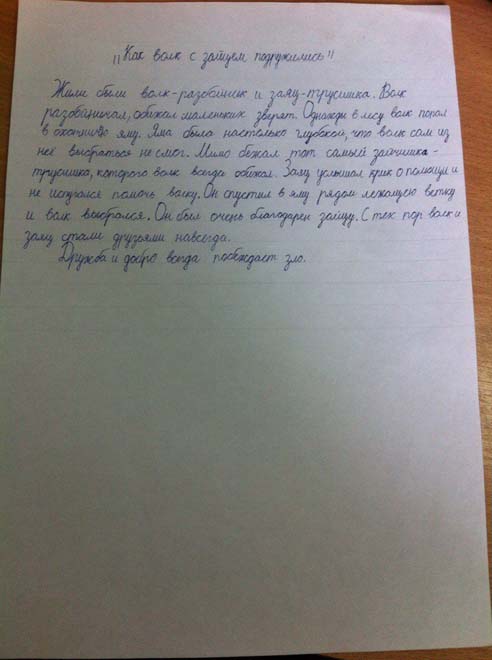 "Как волк с зайцем подружились"
Жили были волк-разобйник и заяц-трусишка. Волк
разобойничал, обижал маленьких зверят. Однажды в лесу волк попал
в охотничью яму. Яма была настолько глубокой, что волк сам из
неё выбраться не смог. Мимо бежал тот самый зайчишка-
трусишка, которого волк всегда обижал. Заяц услышал крик о помощи и
не испугался помочь волку. Он спустил в яму рядом лежащую ветку
и волк выбрался. Он был очень благодарен зайцу. С тех пор волк и
заяц стали друзьями навсегда.
Дружба и добро всегда побеждает зло.